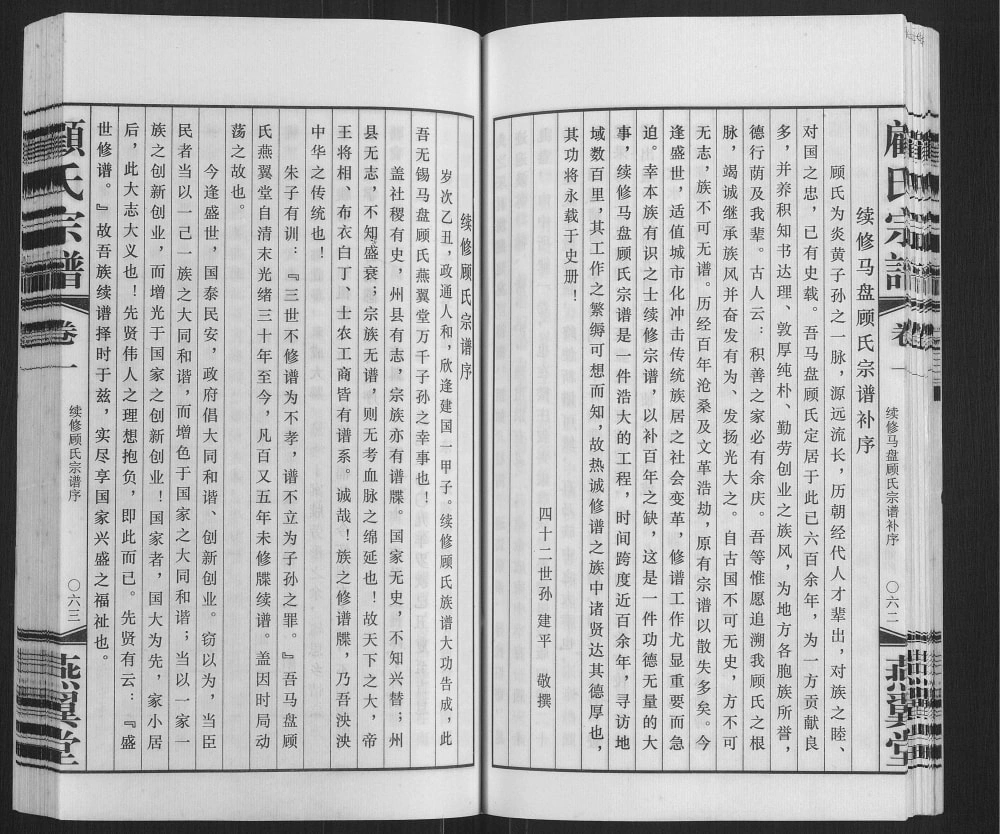 续修马盘顾氏宗谱补序
顾氏为炎黄子孙之一脉，源远流长，历朝经代人才辈出，对族之睦、
对国之忠，已有史载。吾马盘顾氏定居于此已六百余年，为一方贡献良
多，并养积知书达理、敦厚纯朴、勤劳创业之族风，为地方各胞族所誉，
德行荫及我辈。古人云：积善之家必有余庆。吾等惟愿追溯我顾氏之根
脉，竭诚继承族风并奋发有为、发扬光大之。自古国不可无史，方不可
无志，族不可无谱。历经百年沧桑及文革浩劫，原有宗谱以散失多矣。今
逢盛世，适值城市化冲击传统族居之社会变革，修谱工作尤显重要而急
迫。幸本族有识之士续修宗谱，以补百年之缺，这是一件功德无量的大
事，续修马盘顾氏宗谱是一件浩大的工程，时间跨度近百余年，寻访地
域数百里，其工作之繁缛可想而知，故热诚修谱之族中诸贤达其德厚也，
其功将永载于史册！
四十二世孙 建平 敬撰
顾氏宗谱 卷一 续修马盘顾氏宗谱补序 〇六二 燕翼堂
续修顾氏宗谱序
岁次乙丑，政通人和，欣逢建国一甲子。续修顾氏族谱大功告成，此
吾无锡马盘顾氏燕翼堂万千子孙之幸事也！
盖社稷有史，州县有志，宗族亦有谱牒。国家无史，不知兴替；州
县无志，不知盛衰；宗族无谱，则无考血脉之绵延也！故天下之大，帝
王将相、布衣白丁、士农工商皆有谱系。诚哉！族之修谱牒，乃吾泱泱
中华之传统也！
朱子有训：『三世不修谱为不孝，谱不立为子孙之罪。』吾马盘顾
氏燕翼堂自清末光绪三十年至今，凡百又五年未修牒续谱。盖因时局动
荡之故也。
今逢盛世，国泰民安，政府倡大同和谐、创新创业。窃以为，当臣
民者当以一己一族之大同和谐，而增色于国家之大同和谐；当以一家一
族之创新创业，而增光于国家之创新创业！国家者，国大为先，家小居
后，此大志大义也！先贤伟人之理想抱负，即此而已。先贤有云：『盛
世修谱。』故吾族续谱择时于兹，实尽享国家兴盛之福祉也。
顾氏宗谱 卷一 续修顾氏宗谱序 〇六三 燕翼堂